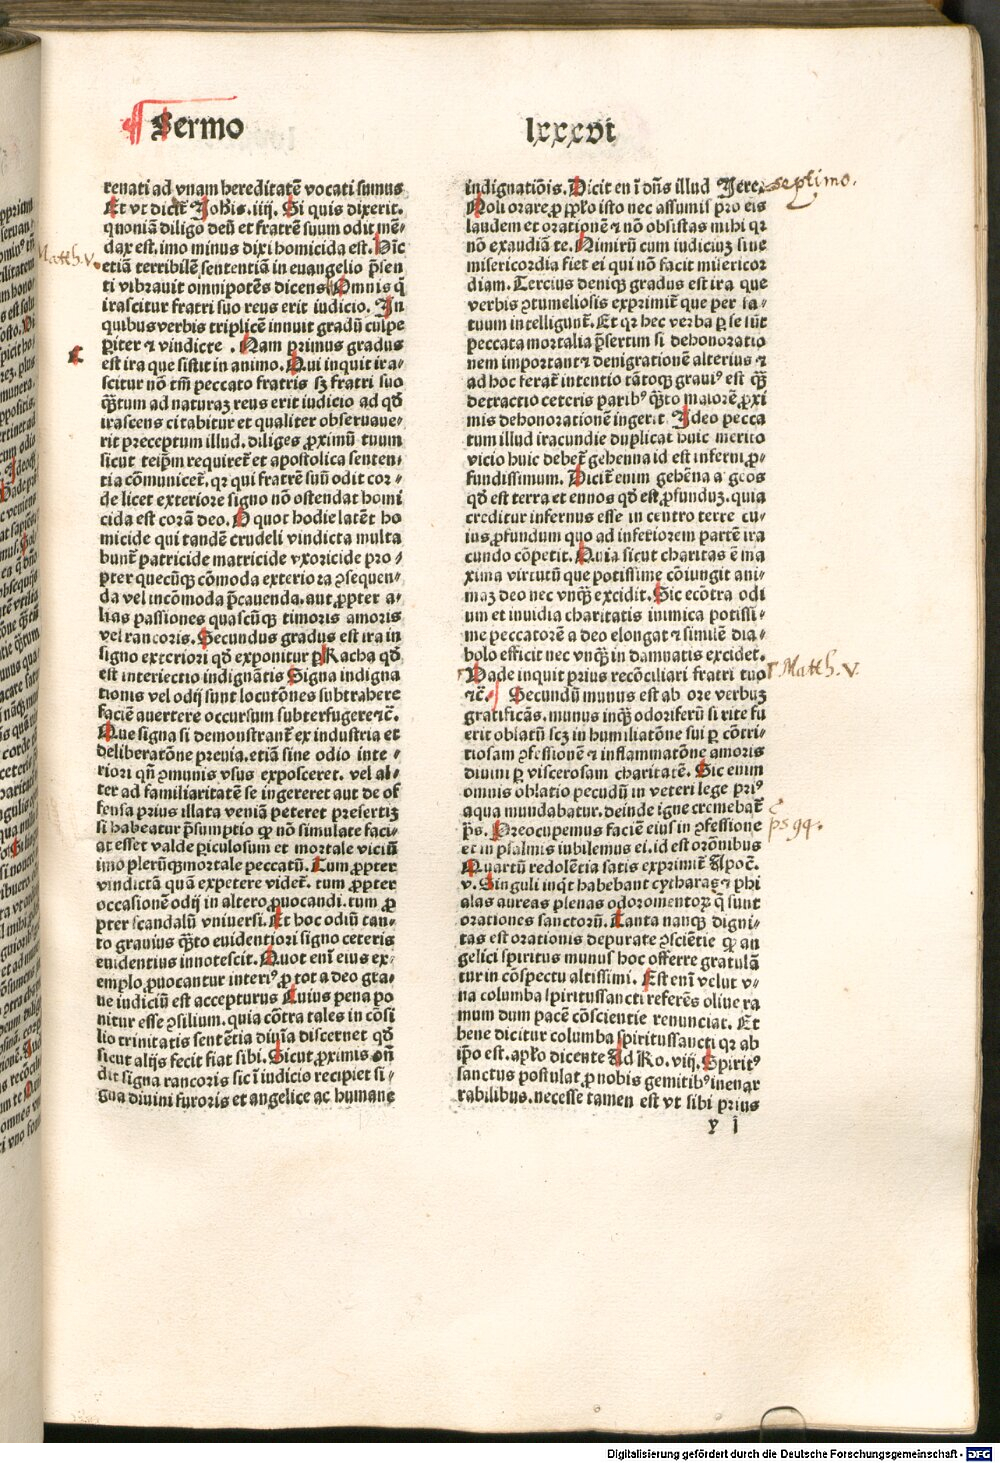 Sermo
lxxxvi
renati ad vnam hereditatē vocati sumus
Et vt dicit Johis. iiij. Si quis dixerit.
quoniā diligo deū et fratrē suum odit mē⸗
dax est. imo minus dixi homicida est. Hīc
etiā terribilē sententiā in euangelio p̄sen
ti vibrauit omnipotēs dicens Omnis q̄
irascitur fratri suo reus erit iudicio. In
quibus verbis triplicē innuit gradū culpe
ꝑiter ⁊ vindicte . Nam primus gradus
est ira que sistit in animo. Qui inquit ira⸗
scitur nō tm̄ peccato fratris sꝫ fratri suo
qᷓtum ad naturaꝫ reus erit iudicio ad qđ
irascens citabitur et qualiter obseruaue⸗
rit preceptum illud. diliges ꝓximū tuum
sicut teip̄m requiret̄ et apostolica senten⸗
tia cōmunicet̄. qꝛ qui fratrē suū odit cor⸗
de licet exteriore signo nō ostendat homi
cida est corā deo. O quot hodie latēt ho
micide qui tandē crudeli vindicta multa
bunt̄ patricide matricide vxoricide pro⸗
pter quecūqꝫ cōmoda exteriora ꝯsequen⸗
da vel incōmoda p̄cauenda. aut ꝓpter a⸗
lias passiones quascūqꝫ timoris amoris
vel rancoris. Secundus gradus est ira in
signo exteriori qđ exponitur ꝑ Racha qđ
est interiectio indignātis Signa indigna
tionis vel odij sunt locutōnes subtrahere
faciē auertere occursum subterfugere ⁊c̄.
Que signa si demonstrant̄ ex industria et
deliberatōne preuia. etiā sine odio inte⸗
riori qn̄ ꝯmunis vsus exposceret. vel al⸗
ter ad familiaritatē se ingereret aut de of
fensa prius illata veniā peteret presertiꝫ
si habeatur p̄sumptio ꝙ nō simulate faci⸗
at esset valde ꝑiculosum et mortale viciū
imo plerūqꝫ mortale peccatū. Cum ꝓpter
vindictā quā expetere videt̄. tum ꝓpter
occasionē odij in altero ꝓuocandi. tum ꝓ
pter scandalū vniuersi. Et hoc odiū tan⸗
to grauius qᷓto euidentiori signo ceteris
euidentius innotescit. Quot enī eius ex⸗
emplo ꝓuocantur interiꝰ ꝓ tot a deo gra⸗
ue iudiciū est accepturus Cuius pena po
nitur esse ꝯsilium. quia cōtra tales in cōsi
lio trinitatis sentētia diuīa discernet qđ
sicut alijs fecit fiat sibi. Sicut ꝓximis on̄
dit signa rancoris sic ī iudicio recipiet si⸗
gna diuini furoris et angelice ac humane
Matth. v.
C
indignatiōis. Dicit en ī dn̄s illud Jere.
Noli orare ꝓ pplo isto nec assumis pro eis
laudem et orationē ⁊ nō obsistas mihi qꝛ
nō exaudiā te. Nimirū cum iudiciuꝫ sine
misericordia fiet ei qui nō facit misericor
diam. Tercius deniqꝫ gradus est ira que
verbis ꝯtumeliosis exprimit̄ que per fa⸗
tuum intelligunt̄. Et qꝛ hec verba ꝑ se sūt
peccata mortalia p̄sertim si dehonoratio
nem important ⁊ denigrationē alterius ⁊
ad hoc ferat̄ intentio tātoqꝫ grauiꝰ est qᷓꝫ
detractio ceteris paribꝰ qᷓto maiorē ꝓxi
mis dehonorationē ingerit. Ideo pecca
tum illud iracundie duplicat huic merito
vicio huic debet̄ gehenna id est inferni ꝓ⸗
fundissimum. Dicit̄ enim gehēna a geos
qđ est terra et ennos qđ est ꝓfunduꝫ. quia
creditur infernus esse in centro terre cu⸗
ius ꝓfundum quo ad inferiorem partē ira
cundo cōpetit. Quia sicut charitas ē ma
xima virtutū que potissime cōiungit ani⸗
maꝫ deo nec vnqᷓ excidit. Sic ecōtra odi
um et inuidia charitatis inimica potissi⸗
me peccatorē a deo elongat ⁊ similē dia⸗
bolo efficit nec vnqᷓ in damnatis excidet.
Vade inquit prius recōciliari fratri tuo
⁊c̄. Secundū munus est ab ore verbuꝫ
gratificās. munus inqᷓ odoriferū si rite fu
erit oblatū scꝫ in humiliatōne sui ꝑ cōtri⸗
tiosam ꝯfessionē ⁊ inflammatōne amoris
diuini ꝑ viscerosam charitatē. Sic enim
omnis oblatio pecudū in veteri lege priꝰ
aqua mundabatur. deinde igne cremebat̄
p̄s. Preocupemus faciē eius in ꝯfessione
et in psalmis iubilemus ei. id est orōnibus
Quartū redolētia satis exprimit̄ Apoc̄.
v. Singuli inq̄t habebant cytharas ⁊ phi
alas aureas plenas odoramentorꝝ q̄ sunt
orationes sanctorū. Tanta nanqꝫ digni⸗
tas est orationis depurate ꝯsciētie ꝙ an
gelici spiritus munus hoc offerre gratulā
tur in cōspectu altissimi. Est enī velut v⸗
na columba spiritussancti referēs oliue ra
mum dum pacē cōscientie renunciat. Et
bene dicitur columba spiritussancti qꝛ ab
ip̄o est. aplo dicente Ad Ro. viij. Spiritꝰ
sanctus postulat ꝓ nobis gemitibꝰ inenar
rabilibus. necesse tamen est vt sibi prius
y j
septimo.
Matth. v.
ps 94.
Digitalisierung gefördert durch die Deutsche Forschungsgemeinschaft - DFG